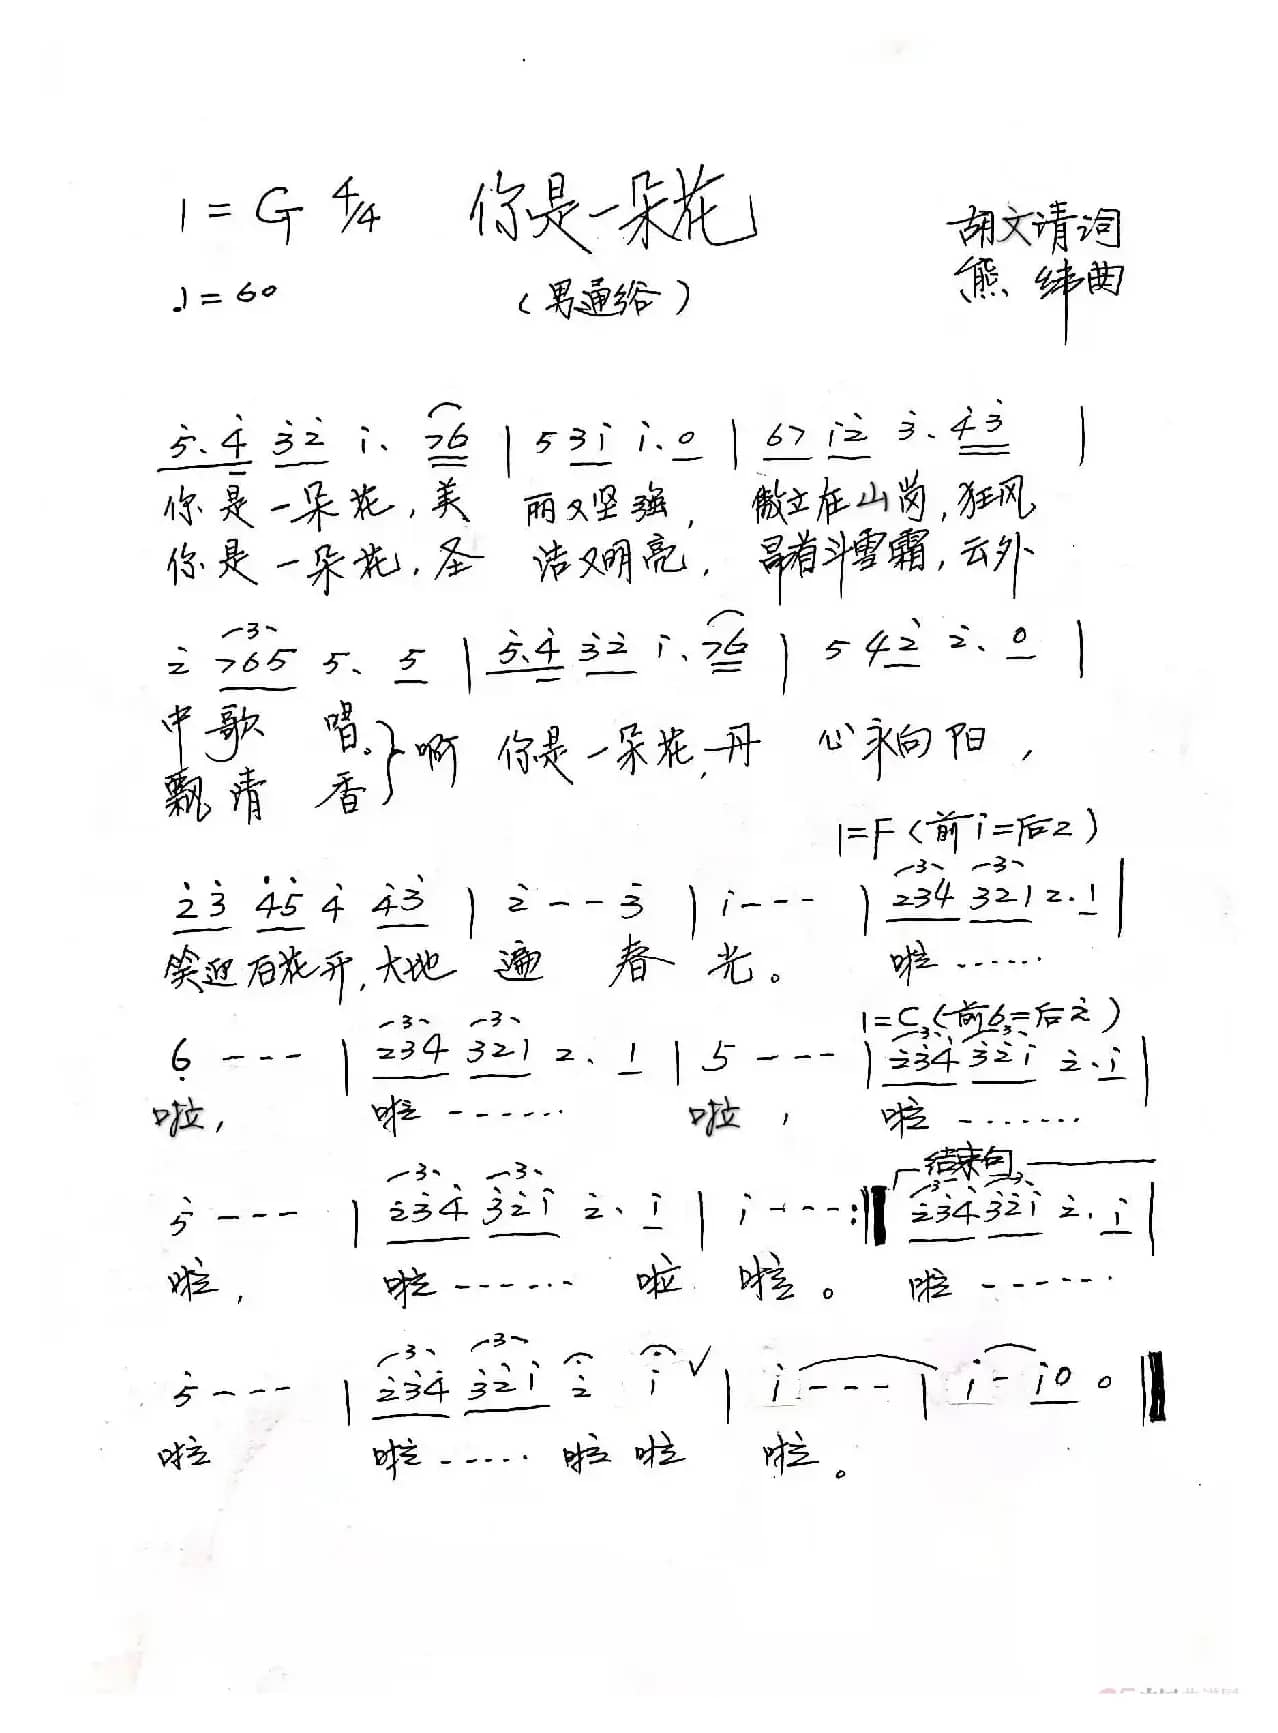 1=G 4/4 你是一朵花 胡文请词
♩=60 (男通俗) 熊 纬曲
5̇.4̇ 3̇2̇ 1̇. 76 | 5 31̇ 1̇.0 | 67 1̇2̇ 3̇.4̇3̇ |
你是一朵花,美 丽又坚强, 傲立在山岗,狂风
你是一朵花,圣 洁又明亮, 昂着斗雪霜,云外
2̇ 765 5. 5 | 5̇.4̇ 3̇2̇ 1̇.76 | 5 42̇ 2̇.0 |
中歌 唱。}啊 你是一朵花,丹 心永向阳,
飘清 香
1=F(前1̇=后2)
2̇3̇ 4̇5̇ 4̇ 4̇3̇ | 2̇--3̇ | 1̇--- | 234 321 2.1 |
笑迎百花开,大地 遍 春 光。 啦……
1=C(前6=后2̇)
6̣ --- | 234 321 2. 1 | 5 --- | 2̇3̇4̇ 3̇2̇1̇ 2̇.1̇ |
啦, 啦…… 啦, 啦……
结束句
5̇ --- | 2̇3̇4̇ 3̇2̇1̇ 2̇. 1̇ | 1̇---:‖ 2̇3̇4̇ 3̇2̇1̇ 2̇.1̇ |
啦, 啦…… 啦 啦。 啦……
5̇ --- | 2̇3̇4̇ 3̇2̇1̇ 2̇ 1̇ ✓ | 1̇--- | 1̇-1̇0 0 ‖
啦 啦…… 啦 啦 啦。